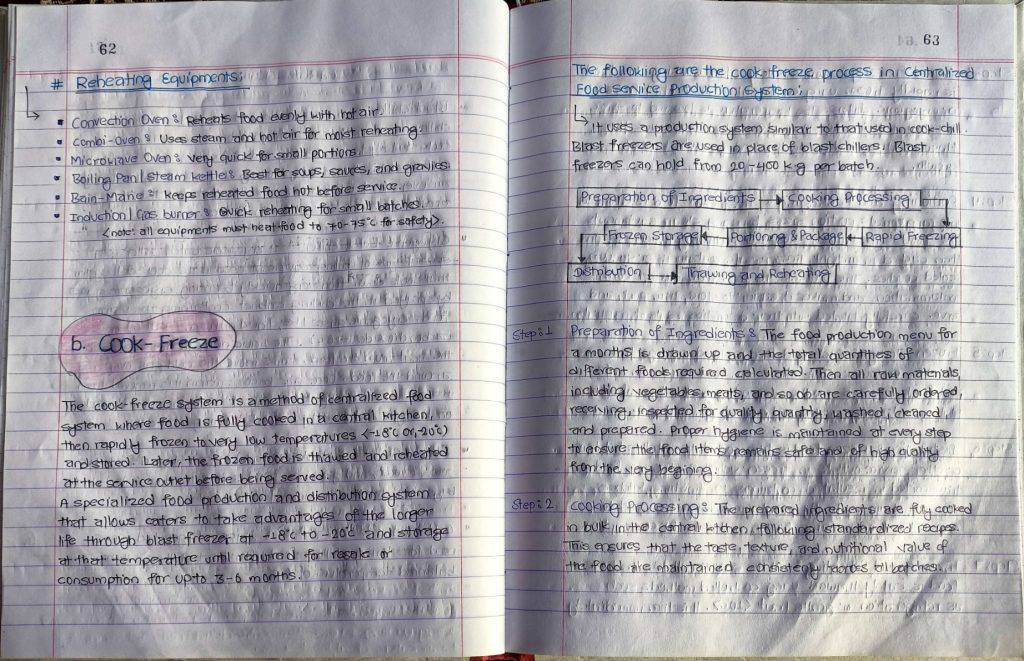 62
# Reheating Equipments:
• Convection Oven : Reheats food evenly with hot air.
• Combi-Oven : Uses steam and hot air for moist reheating.
• Microwave Oven : very quick for small portions.
• Boiling Pan / steam kettle : Best for soups, sauces, and gravies.
• Bain-Marie : keeps reheated food hot before service.
• Induction / Gas burner : Quick reheating for small batches.
<note: all equipments must heat food to 70-75°C for safety>.
b. COOK-Freeze
The cook-freeze system is a method of centralized food
system where food is fully cooked in a central kitchen,
then rapidly frozen to very low temperatures <-18°C or, -20°C)
and stored. Later, the frozen food is thawed and reheated
at the service outlet before being served.
A specialized food production and distribution system
that allows caters to take advantages of the longer
life through blast freezer at -18°C to -20°C and storage
at that temperature until required for resale or
consumption for upto 3-6 months.
63
The following are the cook-freeze process in Centralized
Food service Production System:
It uses a production system similar to that used in cook-chill.
Blast freezers are used in place of blast chillers. Blast
freezers can hold from 20-400 kg per batch.
Preparation of Ingredients → Cooking Processing
Frozen Storage ← Portioning & Package ← Rapid Freezing
Distribution → Thawing and Reheating
Step:1 Preparation of Ingredients : The food production menu for
a months is drawn up and the total quantities of
different foods required calculated. Then all raw materials,
including vegetables, meats, and so on are carefully ordered,
receiving, inspected for quality, quantity, washed, cleaned,
and prepared. Proper hygiene is maintained at every step
to ensure the food items remains safe and of high quality
from the very begining.
Step:2 Cooking Processing : The prepared ingredients are fully cooked
in bulk in the central kitchen, following standardized recipes.
This ensures that the taste, texture, and nutritional value of
the food are maintained, consistenly across all batches.